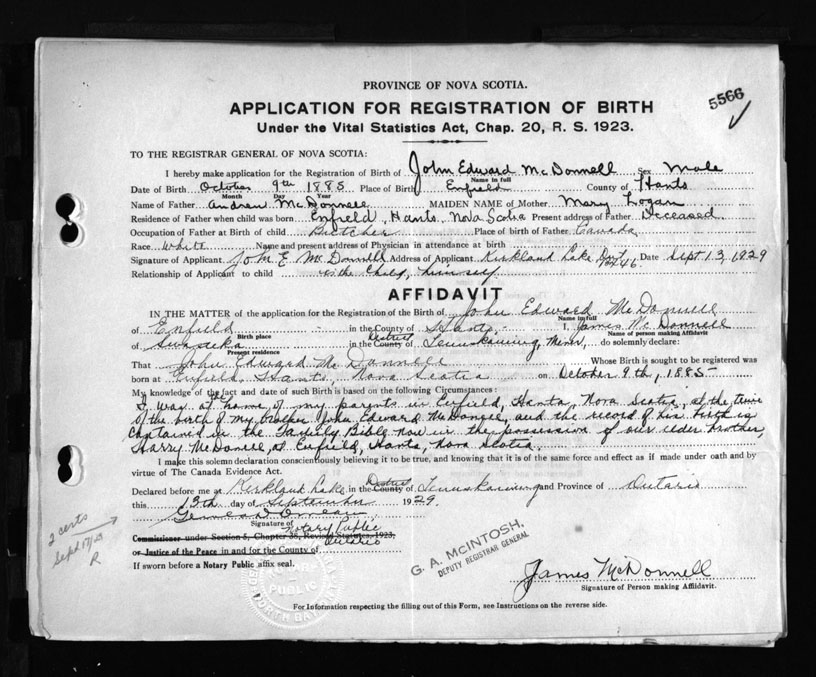 PROVINCE OF NOVA SCOTIA.
5566
APPLICATION FOR REGISTRATION OF BIRTH
Under the Vital Statistics Act, Chap. 20, R. S. 1923.
TO THE REGISTRAR GENERAL OF NOVA SCOTIA:
I hereby make application for the Registration of Birth of John Edward McDonnell Sex Male
Name in full
Date of Birth October 9th 1885 Place of Birth Enfield County of Hants
Month Day Year
Name of Father Andrew McDonnell MAIDEN NAME of Mother Mary Logan
Residence of Father when child was born Enfield, Hants, Nova Scotia Present address of Father Deceased
Occupation of Father at Birth of child Butcher Place of birth of Father Canada
Race White Name and present address of Physician in attendance at birth
Signature of Applicant John E McDonnell Address of Applicant Kirkland Lake Ont Date Sept 13, 1929
Relationship of Applicant to child is the Child, himself
AFFIDAVIT
IN THE MATTER of the application for the Registration of the Birth of John Edward McDonnell
Name in full
of Enfield in the County of Hants I, James McDonnell
Birth place Name of person making Affidavit
of Swastika in the County District of Temiskaming, Miner, do solemnly declare:
Present residence
That John Edward McDonnell Whose Birth is sought to be registered was
born at Enfield, Hants, Nova Scotia on October 9th, 1885
My knowledge of the fact and date of such Birth is based on the following Circumstances:
I was at the home of my parents in Enfield, Hants, Nova Scotia, at the time
of the birth of my brother John Edward McDonnell, and the record of his birth is
contained in the Family Bible now in the possession of our elder brother,
Harry McDonell, at Enfield, Hants, Nova Scotia.
I make this solemn declaration conscientiously believing it to be true, and knowing that it is of the same force and effect as if made under oath and by
virtue of The Canada Evidence Act.
Declared before me at Kirkland Lake in the County District of Temiskaming and Province of Ontario
this 13th day of September 1929.
Signature of
Notary Public
Commissioner under Section 5, Chapter 38, Revised Statutes, 1923,
or Justice of the Peace in and for the County of Ontario
If sworn before a Notary Public affix seal.
2 certs
Sept 17/29
R
G. A. McINTOSH,
DEPUTY REGISTRAR GENERAL
James McDonnell
Signature of Person making Affidavit.
For Information respecting the filling out of this Form, see Instructions on the reverse side.